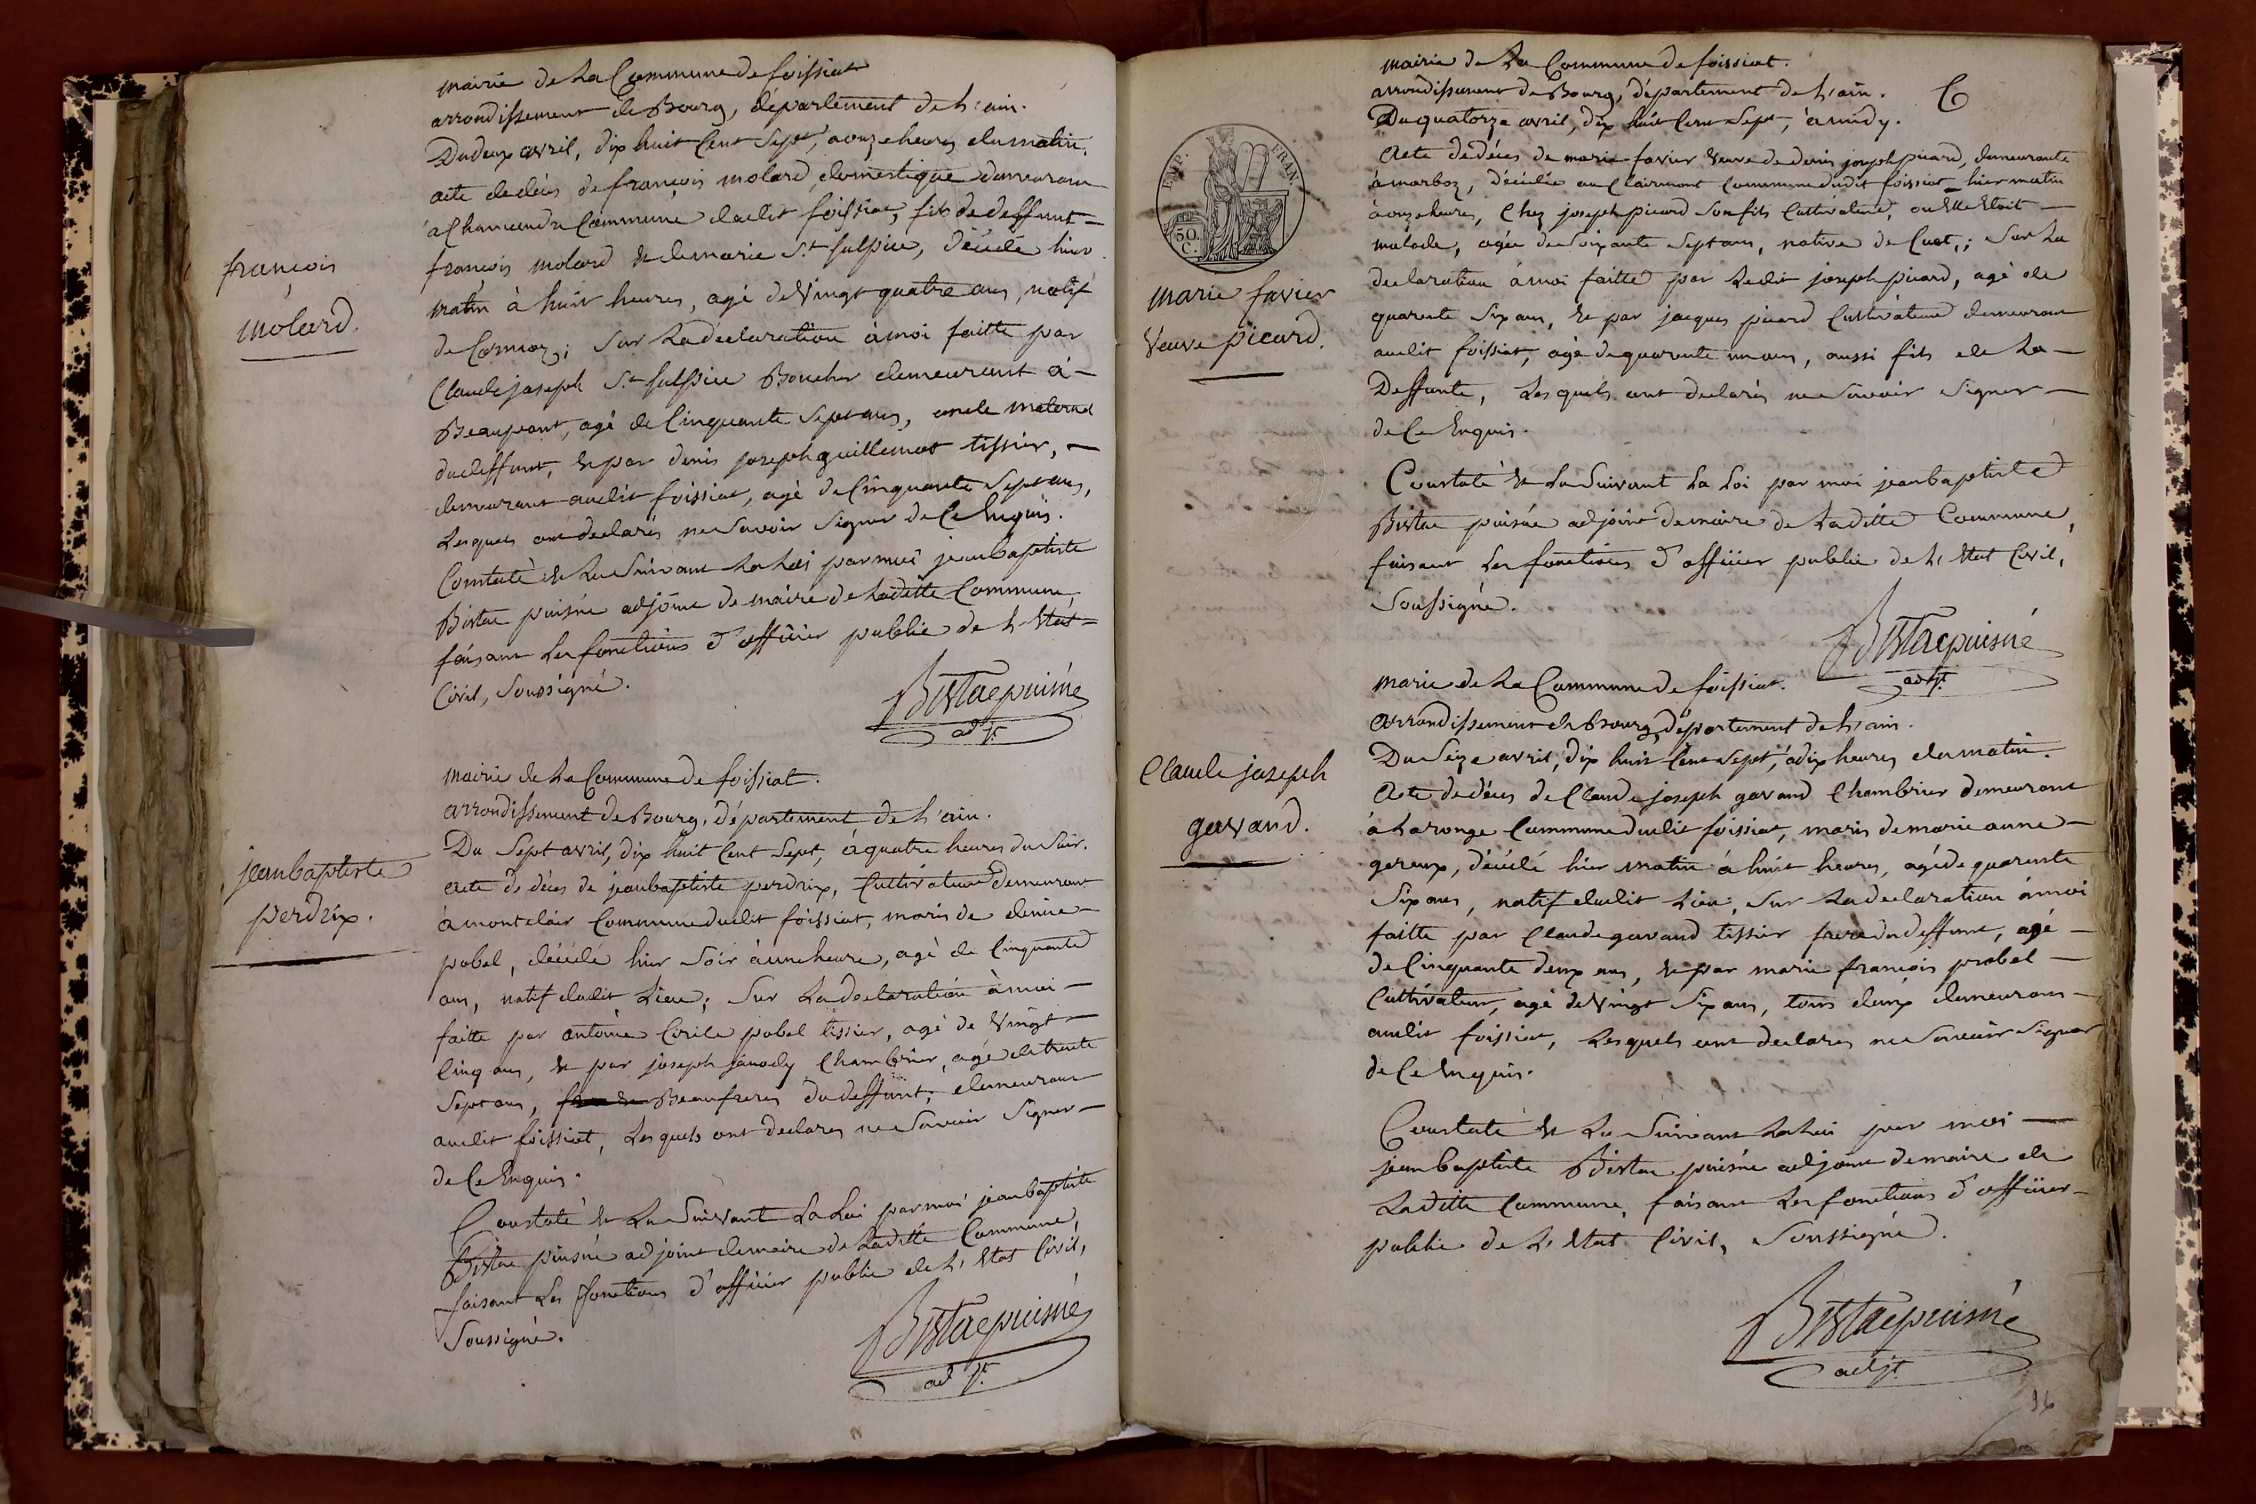 mairie de La Commune de foissiat
arrondissement de Bourg, département de L'ain.
Du deux avril, dix huit Cent Sept, a onze heures du matin.
acte de déces de françois molard, domestique demeurant
a Chamandre Commune dudit foissiat, fils de deffunt
françois molard & de marie St Sulpice, décédé hier
matin à huit heures, agé de Vingt quatre ans, natif
de Cormoz; Sur La declaration à moi faitte par
Claude joseph St Sulpice Boucher demeurant à
Beaupont, agé de Cinquante Sept ans, oncle maternel
du deffunt, & par denis joseph guillemot tissier,
demeurant audit foissiat, agé de Cinquante Sept ans,
Lesquels ont declarés ne Savoir Signer de Ce Enquis.
Constaté & Lu Suivant La Loi par moi jean baptiste
Bistac puisné adjoint de maire de Laditte Commune,
faisant Les fonctions d'officier public de L'Etat
Civil, Soussigné.
Bistac puisné
adjt.
françois
molard.
mairie de La Commune de foissiat.
arrondissement de Bourg, département de L'ain.
Du Sept avril, dix huit Cent Sept, à quatre heures du Soir.
acte de déces de jean baptiste perdrix, Cultivateur demeurant
à montclair Commune dudit foissiat, maris de denise
pobel, décédé hier Soir à une heure, agé de Cinquante
ans, natif dudit Lieu; Sur La declaration à moi
faitte par antoine Cirile pobel tissier, agé de Vingt
Cinq ans, & par joseph janody Chambrier, agé de trente
Sept ans, Beaufreres du deffunt, demeurant
audit foissiat, Lesquels ont declarés ne Savoir Signer
de Ce Enquis.
Constaté & Lu Suivant La Loi par moi jean baptiste
Bistac puisné adjoint de maire de Laditte Commune,
faisant Les fonctions d'officier public de L'Etat Civil,
Soussigné.
Bistac puisné
adjt.
jean baptiste
perdrix.
mairie de La Commune de foissiat.
arrondissement de Bourg, département de L'ain.
Du quatorze avril, dix huit Cent Sept, à midy.
Acte de déces de marie favier Veuve de denis joseph picard, demeurante
à marboz, décédée au Clairmont Commune dudit foissiat hier matin
à onze heures, Chez joseph picard Son fils Cultivateur, ou Elle Etoit
malade, agée de Soixante Sept ans, native de Cuet; Sur La
declaration à moi faitte par Ledit joseph picard, agé de
quarente Six ans, & par jacques picard Cultivateur demeurant
audit foissiat, agé de quarente un ans, aussi fils de La
Deffunte, Lesquels ont declarés ne Savoir Signer
de Ce Enquis.
Constaté & Lu Suivant La Loi par moi jean baptiste
Bistac puisné adjoint de maire de Laditte Commune,
faisant Les fonctions d'officier public de L'Etat Civil,
Soussigné.
Bistac puisné
adjt.
EMP. FRAN.
50.
C.
marie favier
Veuve picard.
Marie de La Commune de foissiat.
Arrondissement de Bourg, département de L'ain.
Du Seize avril, dix huit Cent Sept, à dix heures du matin.
Acte de déces de Claude joseph gavand Chambrier demeurant
à Laronge Commune dudit foissiat, maris de marie anne
décédé hier matin à huit heures, agé de quarente
Six ans, natif dudit Lieu, Sur La declaration à moi
faitte par Claude gavand tissier frere du deffunt, agé
de Cinquante deux ans, & par marie françois probel
Cultivateur, agé de Vingt Six ans, tous deux demeurans
audit foissiat, Lesquels ont declarés ne Savoir Signer
de Ce Enquis.
Constaté & Lu Suivant La Loi par moi
jean baptiste Bistac puisné adjoint de maire de
Laditte Commune, faisant Les fonctions d'officier
public de L'Etat Civil, Soussigné.
Bistac puisné
adjt.
Claude joseph
gavand.